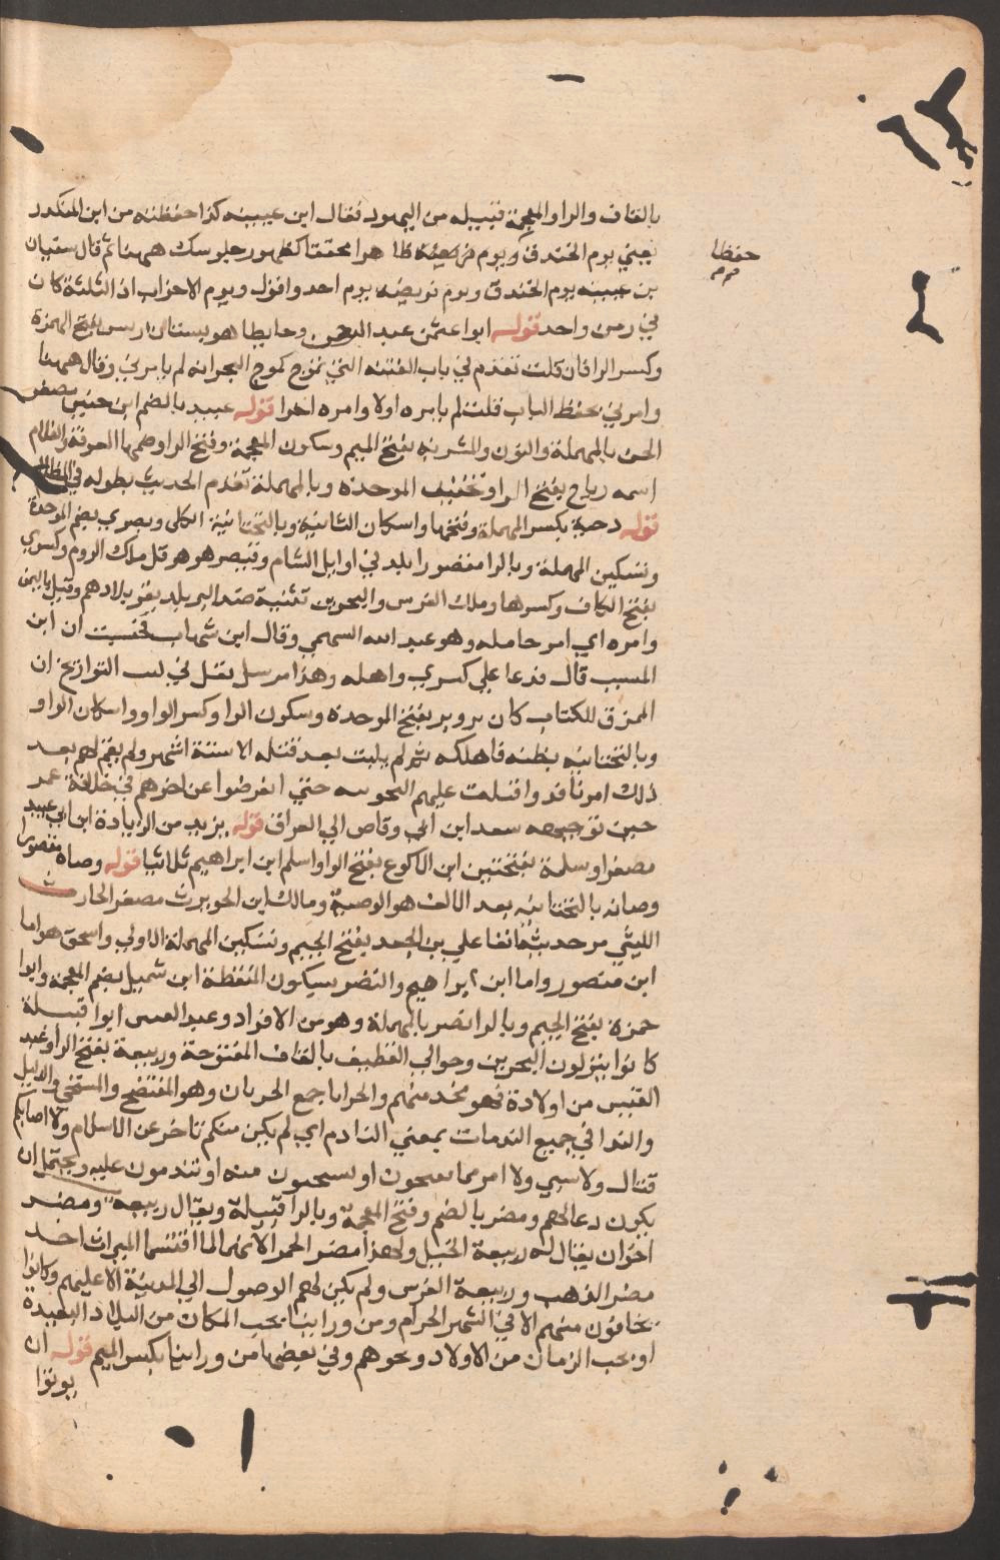 بالقاف والراو المعجمة قبيله من اليهود فقال ابن عيينه كذا حفظته من ابن المنكدر
يعني يوم الخندق ويوم قريظه هرا محققا كظهور جلوسك ههنا ثم قال سفيان
بن عيينه يوم الخندق ويوم قريضه يوم احد واقول ويوم الاحزاب اذ الثلثة كان
في زمن واحد قوله ابوا عثمن عبد الرحمن وحايطا هو بستان اريس بفتح الهمزة
وكسر الرا فان قلت تقدم في باب الفتنه التي تموج كموج البحر انه لم يامرني وقال ههنا
وامرني بحفظ الباب قلت لم يامره اولا وامره اخرا قوله عبيد بالضم ابن حنين مصغر
الحن بالمهملة والنون والمشربه بفتح الميم وسكون المعجمة وفتح الرا وضمها الغرفة والغلام
اسمه رباح بفتح الرا وتخفيف الموحدة وبالمهملة تقدم الحديث بطوله في
قوله دحية بكسر المهملة وفتحها واسكان الثانية وبالتحتانية الكلبى وبصري بضم الموحدة
وتسكين المهملة وبالرا مقصورا بلد في اوايل الشام وقيصر هو هرقل ملك الروم وكسري
بفتح الكاف وكسرها وملك الفرس والبحرين تثنية ضد البر بلد بقرب بلادهم وقيل باليمن
وامره اي امر حامله وهو عبد الله السهمي وقال ابن شهاب فحسبت ان ابن
المسيب قال فدعا علي كسري واهله وهذا مرسل نقل في كتب التواريخ ان
الممزق للكتاب كان برويز بفتح الموحدة وسكون الرا وكسر الواو واسكان الواو
وبالتحتانيه بطنه فاهلكه ثم لم يلبث بعد قتله الا ستة اشهر ولم يقم لهم بعد
ذلك امر نافذ واقبلت عليهم النحوسه حتي انقرضوا عن اخرهم في خلافة عمر
حين توجيهه سعد ابن ابي وقاص الي العراق قوله يزيد من الزيادة ابن ابي عبيد
مصغرا وسلمة بفتحتين ابن الاكوع بفتح الواو اسلم ابن ابراهيم ثلاثيا قوله وصاه مقصورا
وصانه بالتحتانيه بعد الالف هو الوصية ومالك ابن الحويرث مصغر الحارث
الليثي مر حديثه انفا علي بن الجعد بفتح الجيم وتسكين المهملة الاولي واسحق هو اما
ابن منصور واما ابن ابراهيم والنضر بسكون المنقطة ابن شميل بضم المعجمة وابوا
جمرة بفتح الجيم وبالرا نصر بالمهملة وهو من الافراد وعبد القيس ابوا قبيلة
كانوا ينزلون البحرين وحوالي القطيف بالقاف المفتوحة وربيعة بفتح الرا وعبد
القيس من اولادة فهو فخذ منهم والخزايا جمع الخزيان وهو المفتضح والمستحي والذليل
والندا في جميع الندمان بمعني النادم اي لم يكن منكم تاخر عن الاسلام ولا اصابكم
قتال ولا سبي ولا امر مما تفتضحون او تستحيون منه او تندمون عليه ويحتمل ان
يكون دعا لهم ومضر بالضم وفتح المعجمة وبالرا قبيلة ويقال ربيعة ومضر
اخوان يقال له ربيعة الخيل ولهذا مضر الحمرا لانهما لما اقتسما الميراث اخذ
مضر الذهب وربيعة الفرس ولم يكن لهم الوصول الي المدينة الا عليهم وكانوا
يخافون منهم الا في الشهر الحرام ومن ورايبنا بحب المكان من البلاد البعيدة
او بحب الزمان من الاولاد ونحوهم وفي بعضها من وراينا بكسر الميم قوله ان
يوتوا
حفظا